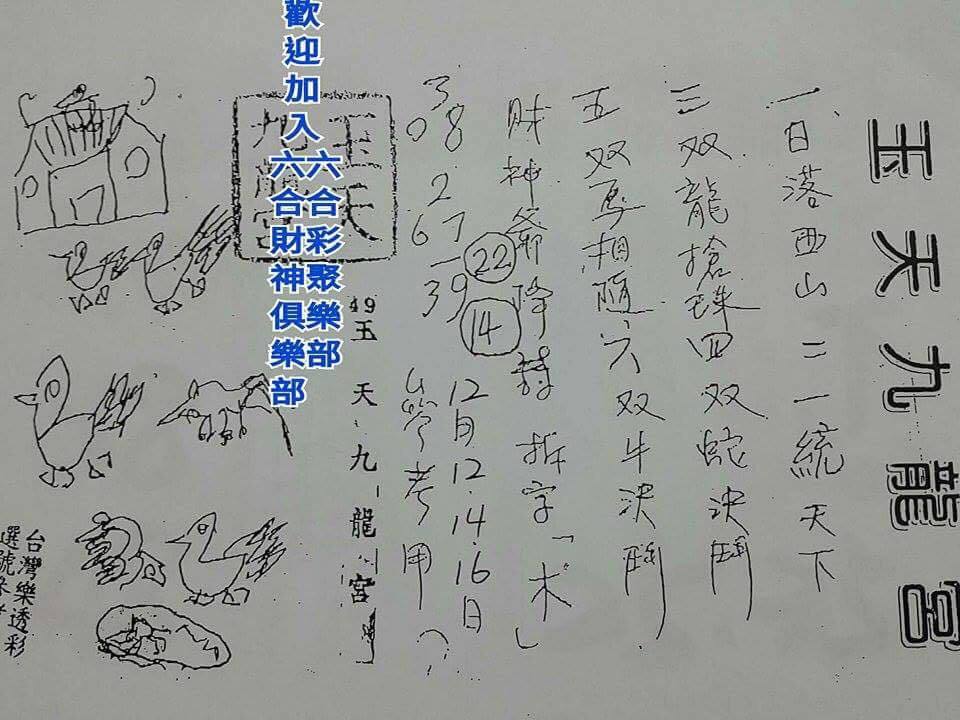 玉天九龍宮
一、日落西山二一統天下
三双龍搶珠四双蛇決鬥
五双馬相隨六双牛決鬥
財神爺降 拆字「木」
38.27-39
06 39
22
14
12月12.14.16日
參考用
49
玉天九龍宮
玉天
九龍宮
歡迎加入六合彩聚樂部
六合財神俱樂部
台灣樂透彩
選號